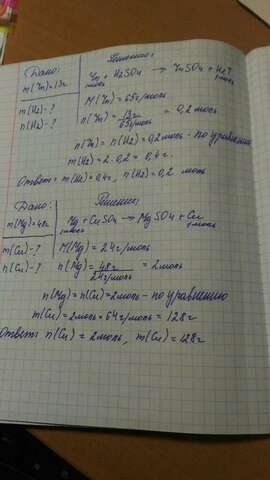 Дано:
Решение:
m(Zn)=13г
Zn + H2SO4 → ZnSO4 + H2↑
1моль 1моль
m(H2)-?
n(H2)-?
M(Zn) = 65г/моль
n(Zn) = 13г/65г/моль = 0,2 моль
n(Zn) = n(H2) = 0,2 моль - по уравнению
m(H2) = 2·0,2 = 0,4г.
Ответ: m(H2) = 0,4г, n(H2) = 0,2 моль
Дано:
Решение:
m(Mg)=48г
Mg + CuSO4 → MgSO4 + Cu
1моль 1моль
m(Cu)-?
n(Cu)-?
M(Mg) = 24г/моль
n(Mg) = 48г/24г/моль = 2моль
n(Mg) = n(Cu) = 2моль - по уравнению
m(Cu) = 2моль * 64г/моль = 128г
Ответ: n(Cu) = 2моль, m(Cu) = 128г